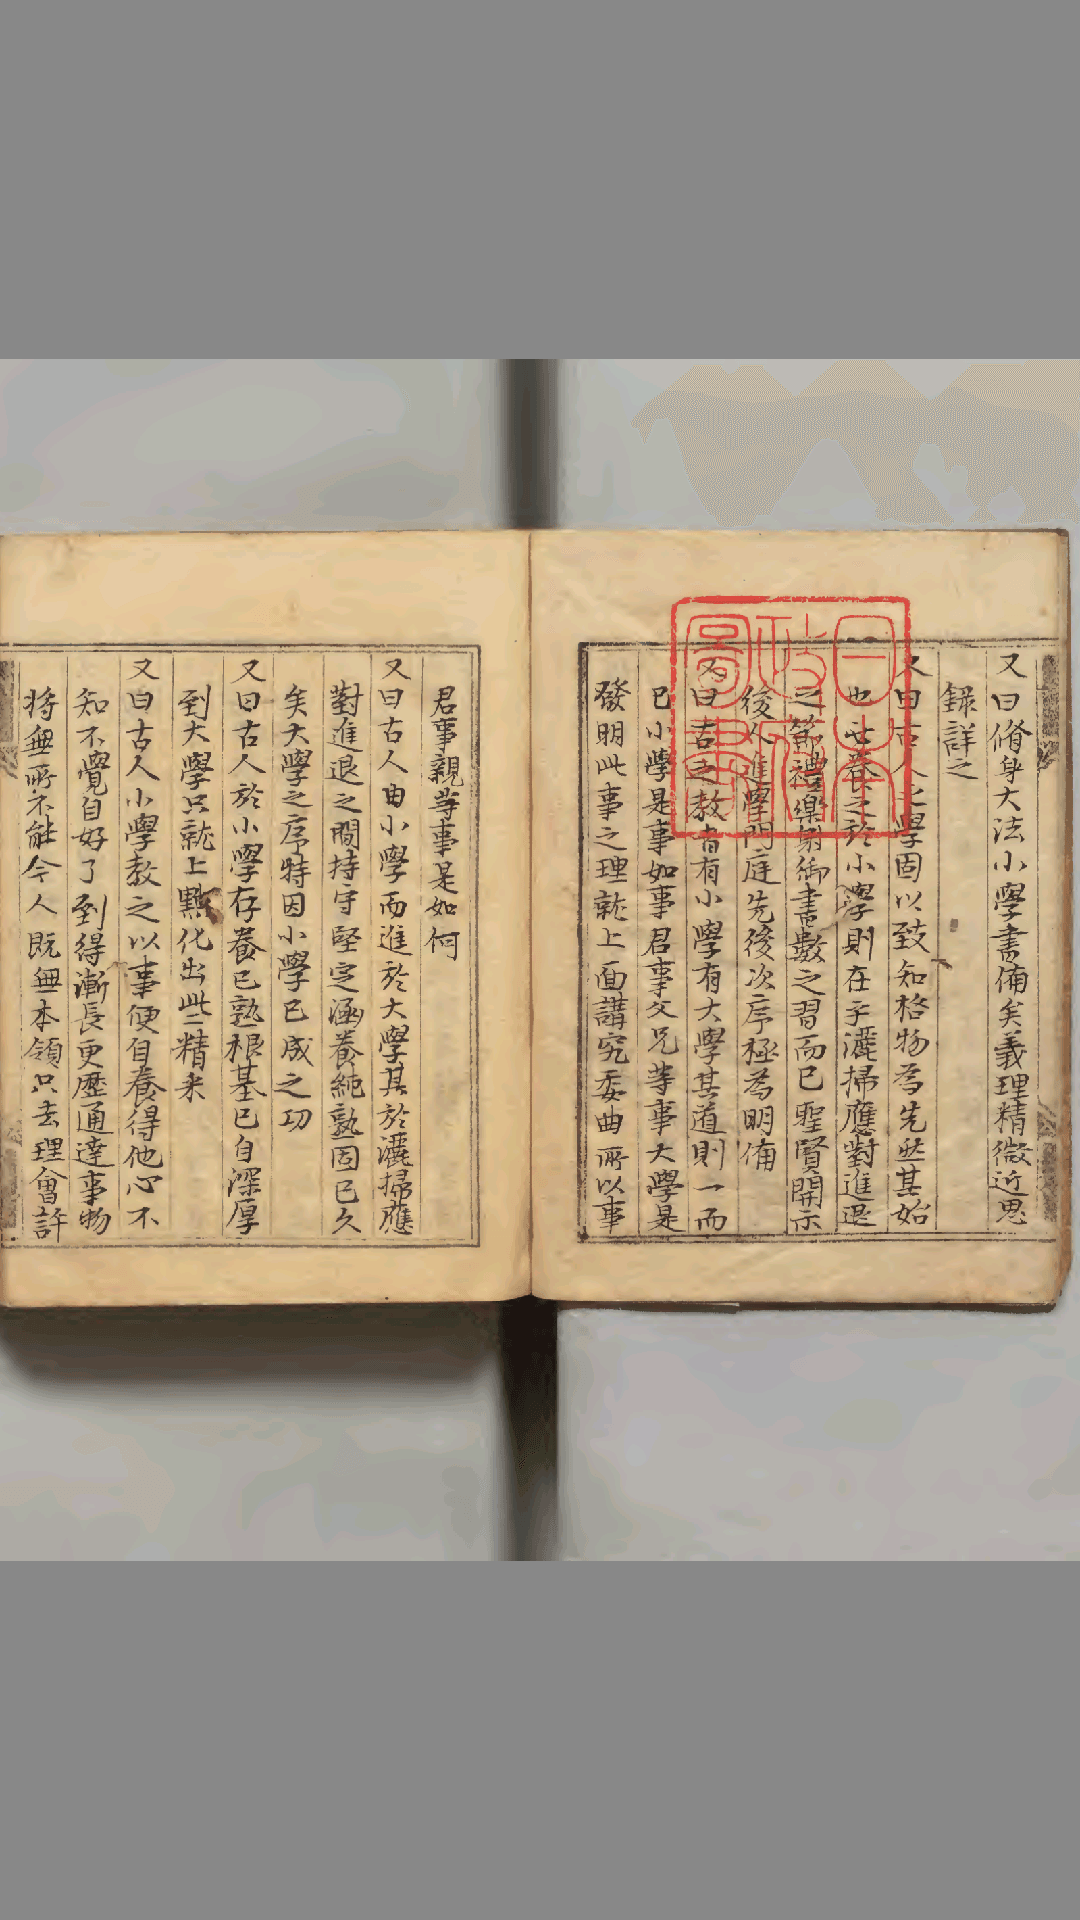 又曰脩身大法小學書俻矣義理精微近思
錄詳之
又曰古人之學固以致知格物為先然其始
也必養之於小學則在乎灑掃應對進退
之節禮樂射御書數之習而已聖賢開示
後人進學門庭先後次序極為明俻
又曰古之教者有小學有大學其道則一而
已小學是事如事君事父兄等事大學是
發明此事之理就上面講究委曲所以事
君事親等事是如何
又曰古人由小學而進於大學其於灑掃應
對進退之間持守堅定涵養純熟固已久
矣大學之序特因小學已成之功
又曰古人於小學存養已熟根基已自深厚
到大學只就上點化出些精彩
又曰古人小學教之以事便自養得他心不
知不覺自好了到得漸長更歷通達事物
將無所不能今人既無本領只去理會許
日本
政府
圖書